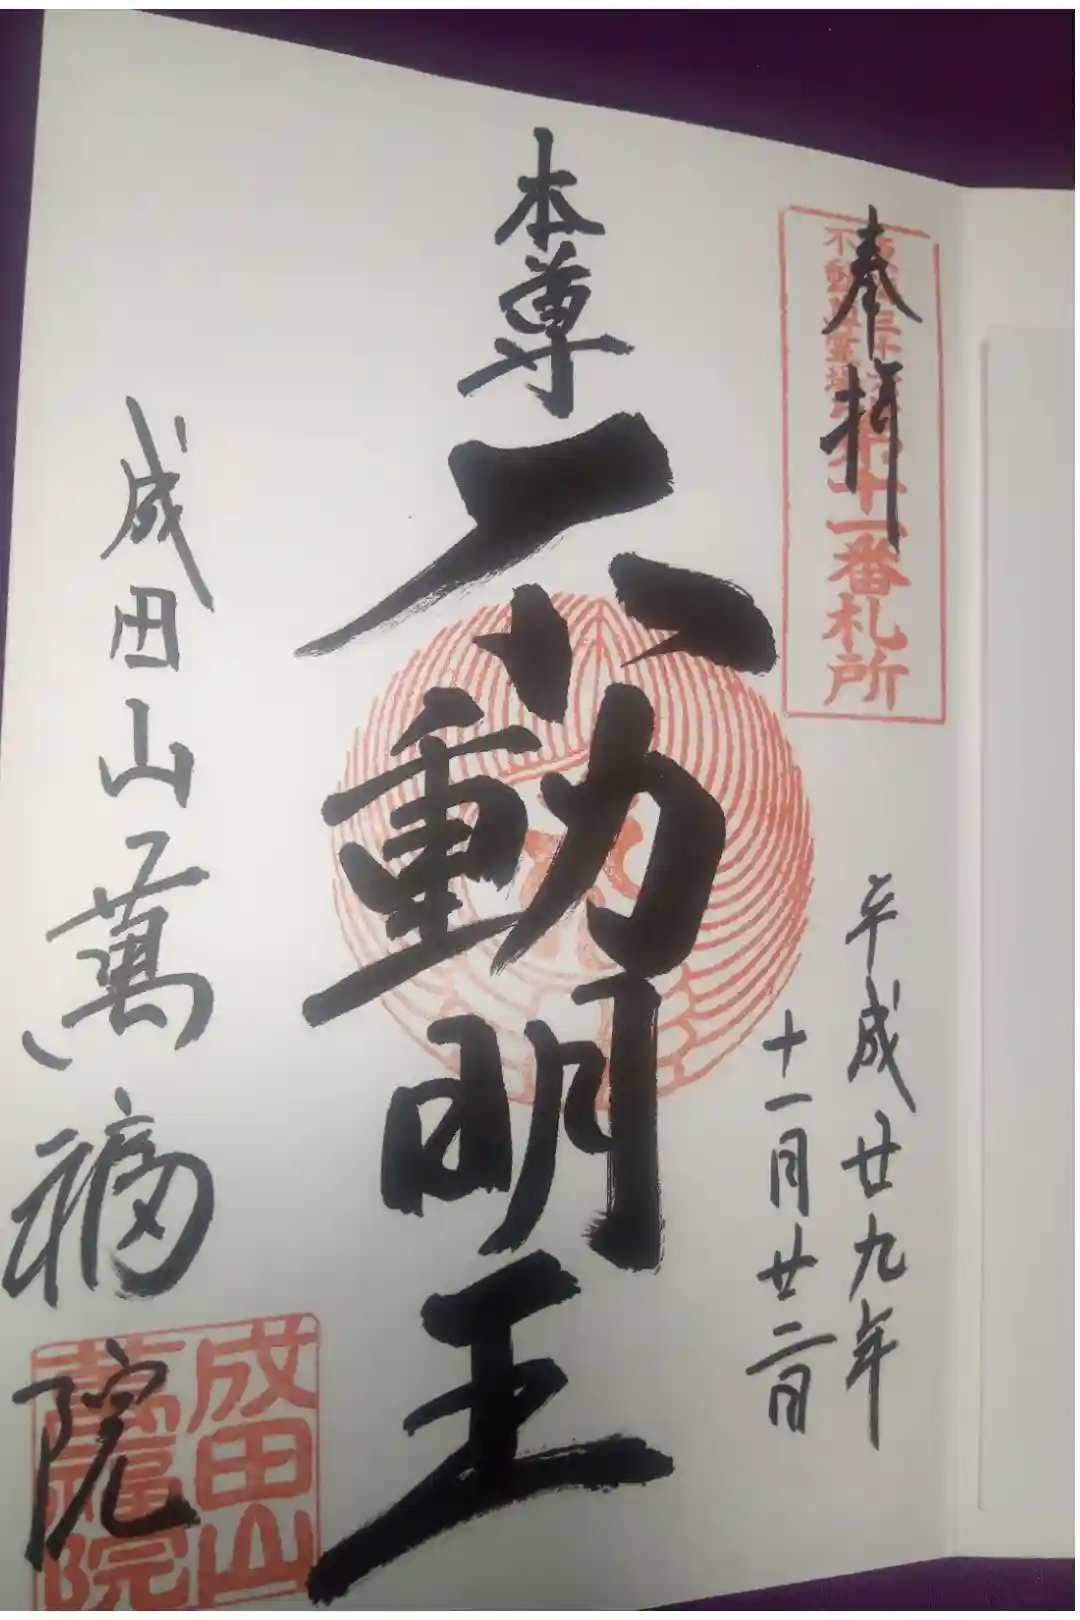 奉拝
第十一番札所
平成廿九年
十一月廿二日
本尊
不動明王
成田山萬福院
成田山
萬福院